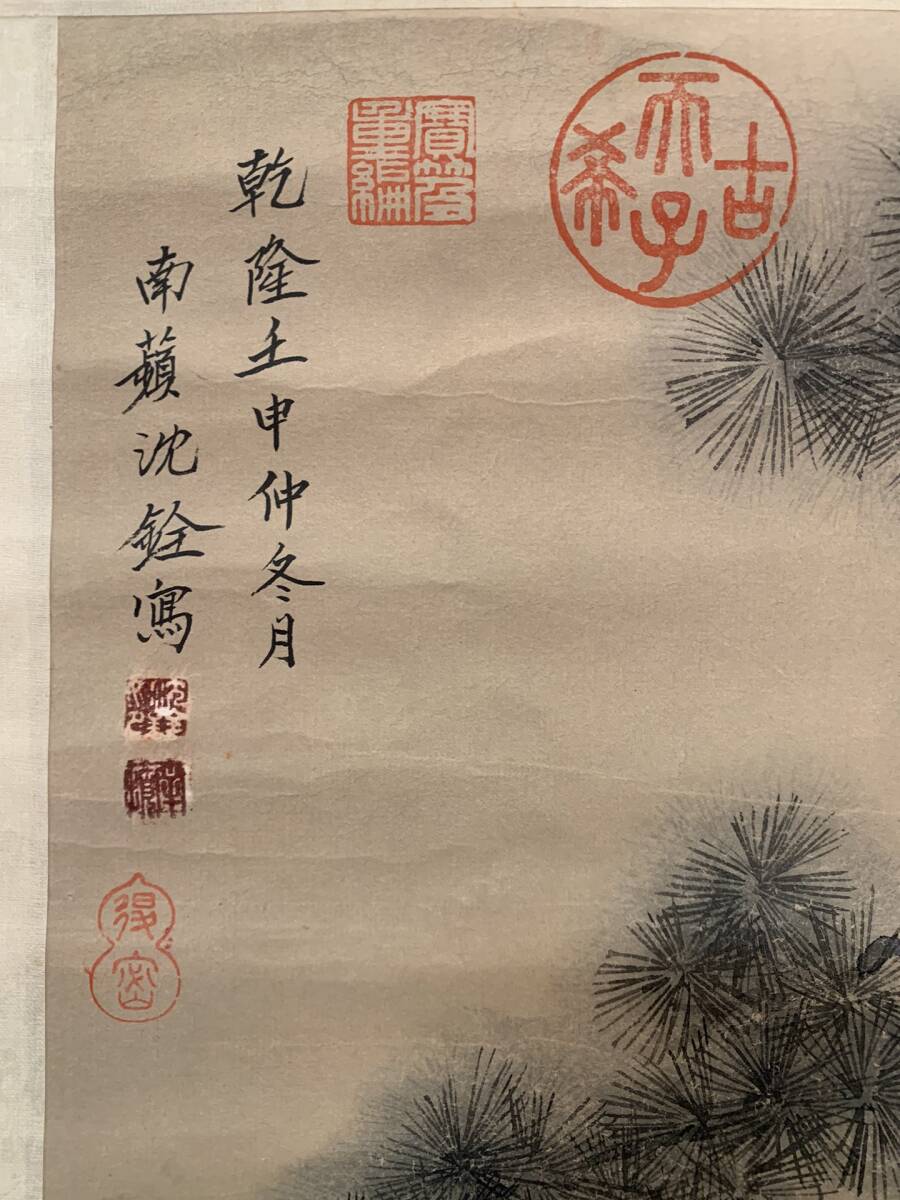 乾隆壬申仲冬月
南蘋沈銓寫
古希天子
寶笈重編